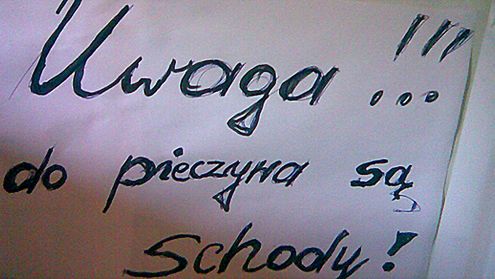 Uwaga !!!
do pieczyna są
schody!